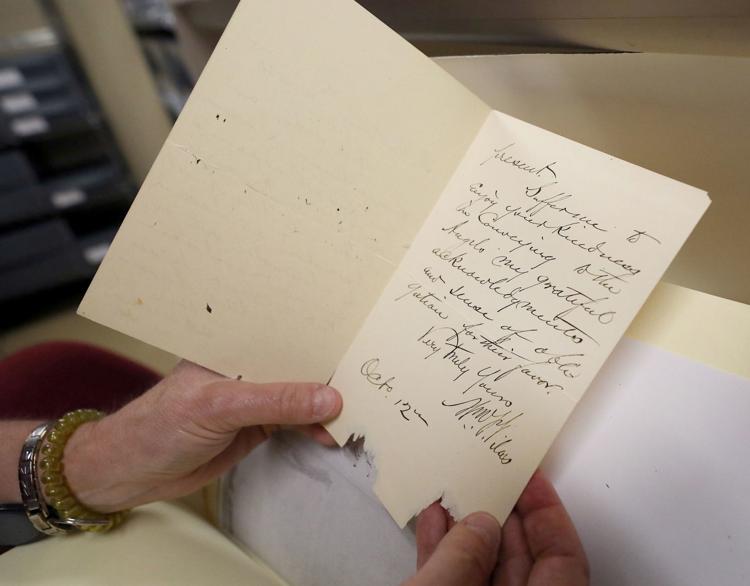 present.
Suffer me to
enjoy your kindness
in conveying to the
Angels my grateful
acknowledgements
and sense of obli
gation for their favor.
Very truly yours
Wm F. Vilas
Oct. 12